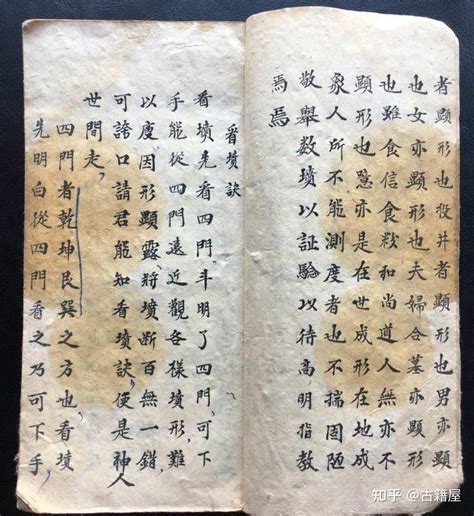 者顯形也投井者顯形也男亦顯
也女亦顯形也夫婦合墓亦顯形
也雖食信食粉和尚道人無亦不
顯形也亦是在世成形在地成
象人所不能測度者也不揣固陋
敬舉数墳以証驗以待高明指教
焉焉
看墳訣
看墳先看四門斗明了四門可下
手能從四門遠近觀各樣墳形難
以度因形顯露將墳斷百無一錯
可誇口請君能知看墳訣便是神人
世間走
四門者乾坤艮巽之方也看墳
先明白從四門看之乃可下手
知乎 @古籍屋